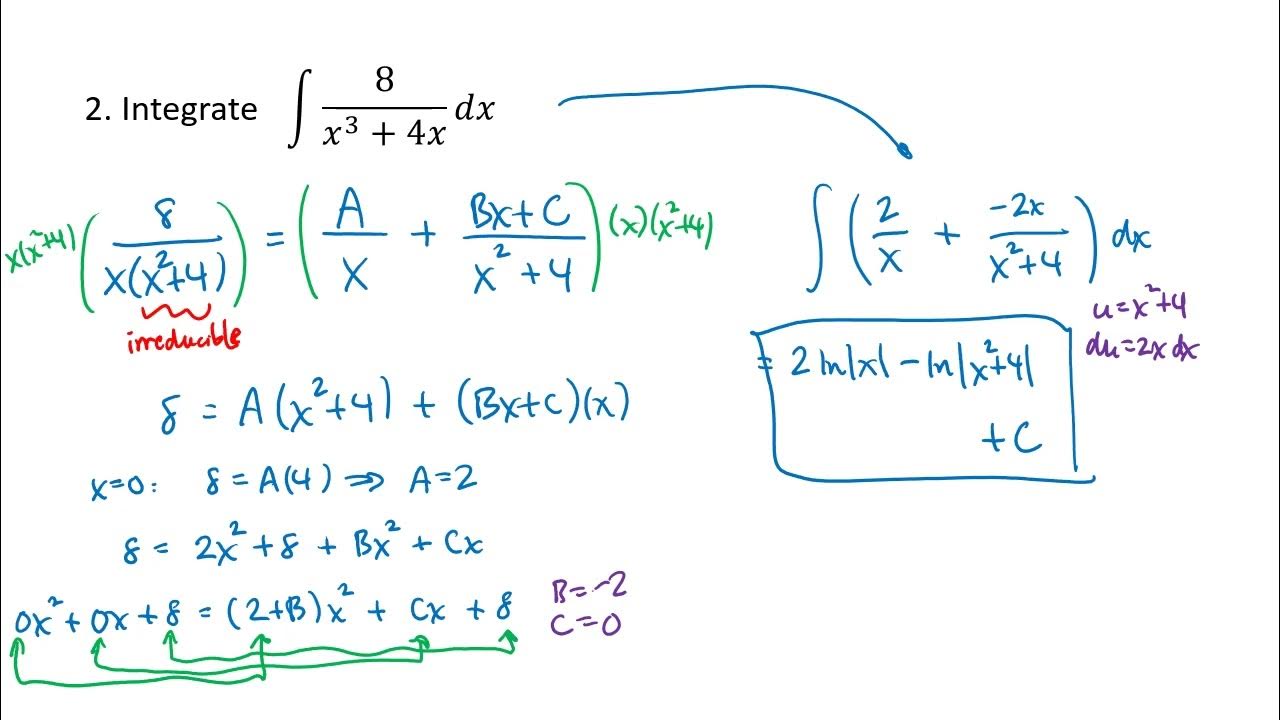 2. Integrate ∫ 8/(x³ + 4x) dx
x(x²+4) ( 8/(x(x²+4)) ) = ( A/x + (Bx+C)/(x²+4) ) (x)(x²+4)
irreducible
8 = A(x²+4) + (Bx+C)(x)
x=0: 8 = A(4) ⇒ A=2
8 = 2x² + 8 + Bx² + Cx
0x² + 0x + 8 = (2+B)x² + Cx + 8
B=-2
C=0
∫ ( 2/x + -2x/(x²+4) ) dx
u=x²+4
du=2x dx
= 2 ln|x| - ln|x²+4|
+ C